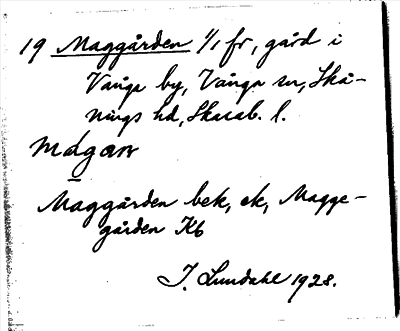 19 Maggården 1/1 fr, gård i
Vånga by, Vånga sn, Skå-
nings hd, Skarab. l.
mágaɴ
Maggården bek, ek, Magge-
gården Kb
I. Lundahl 1928.